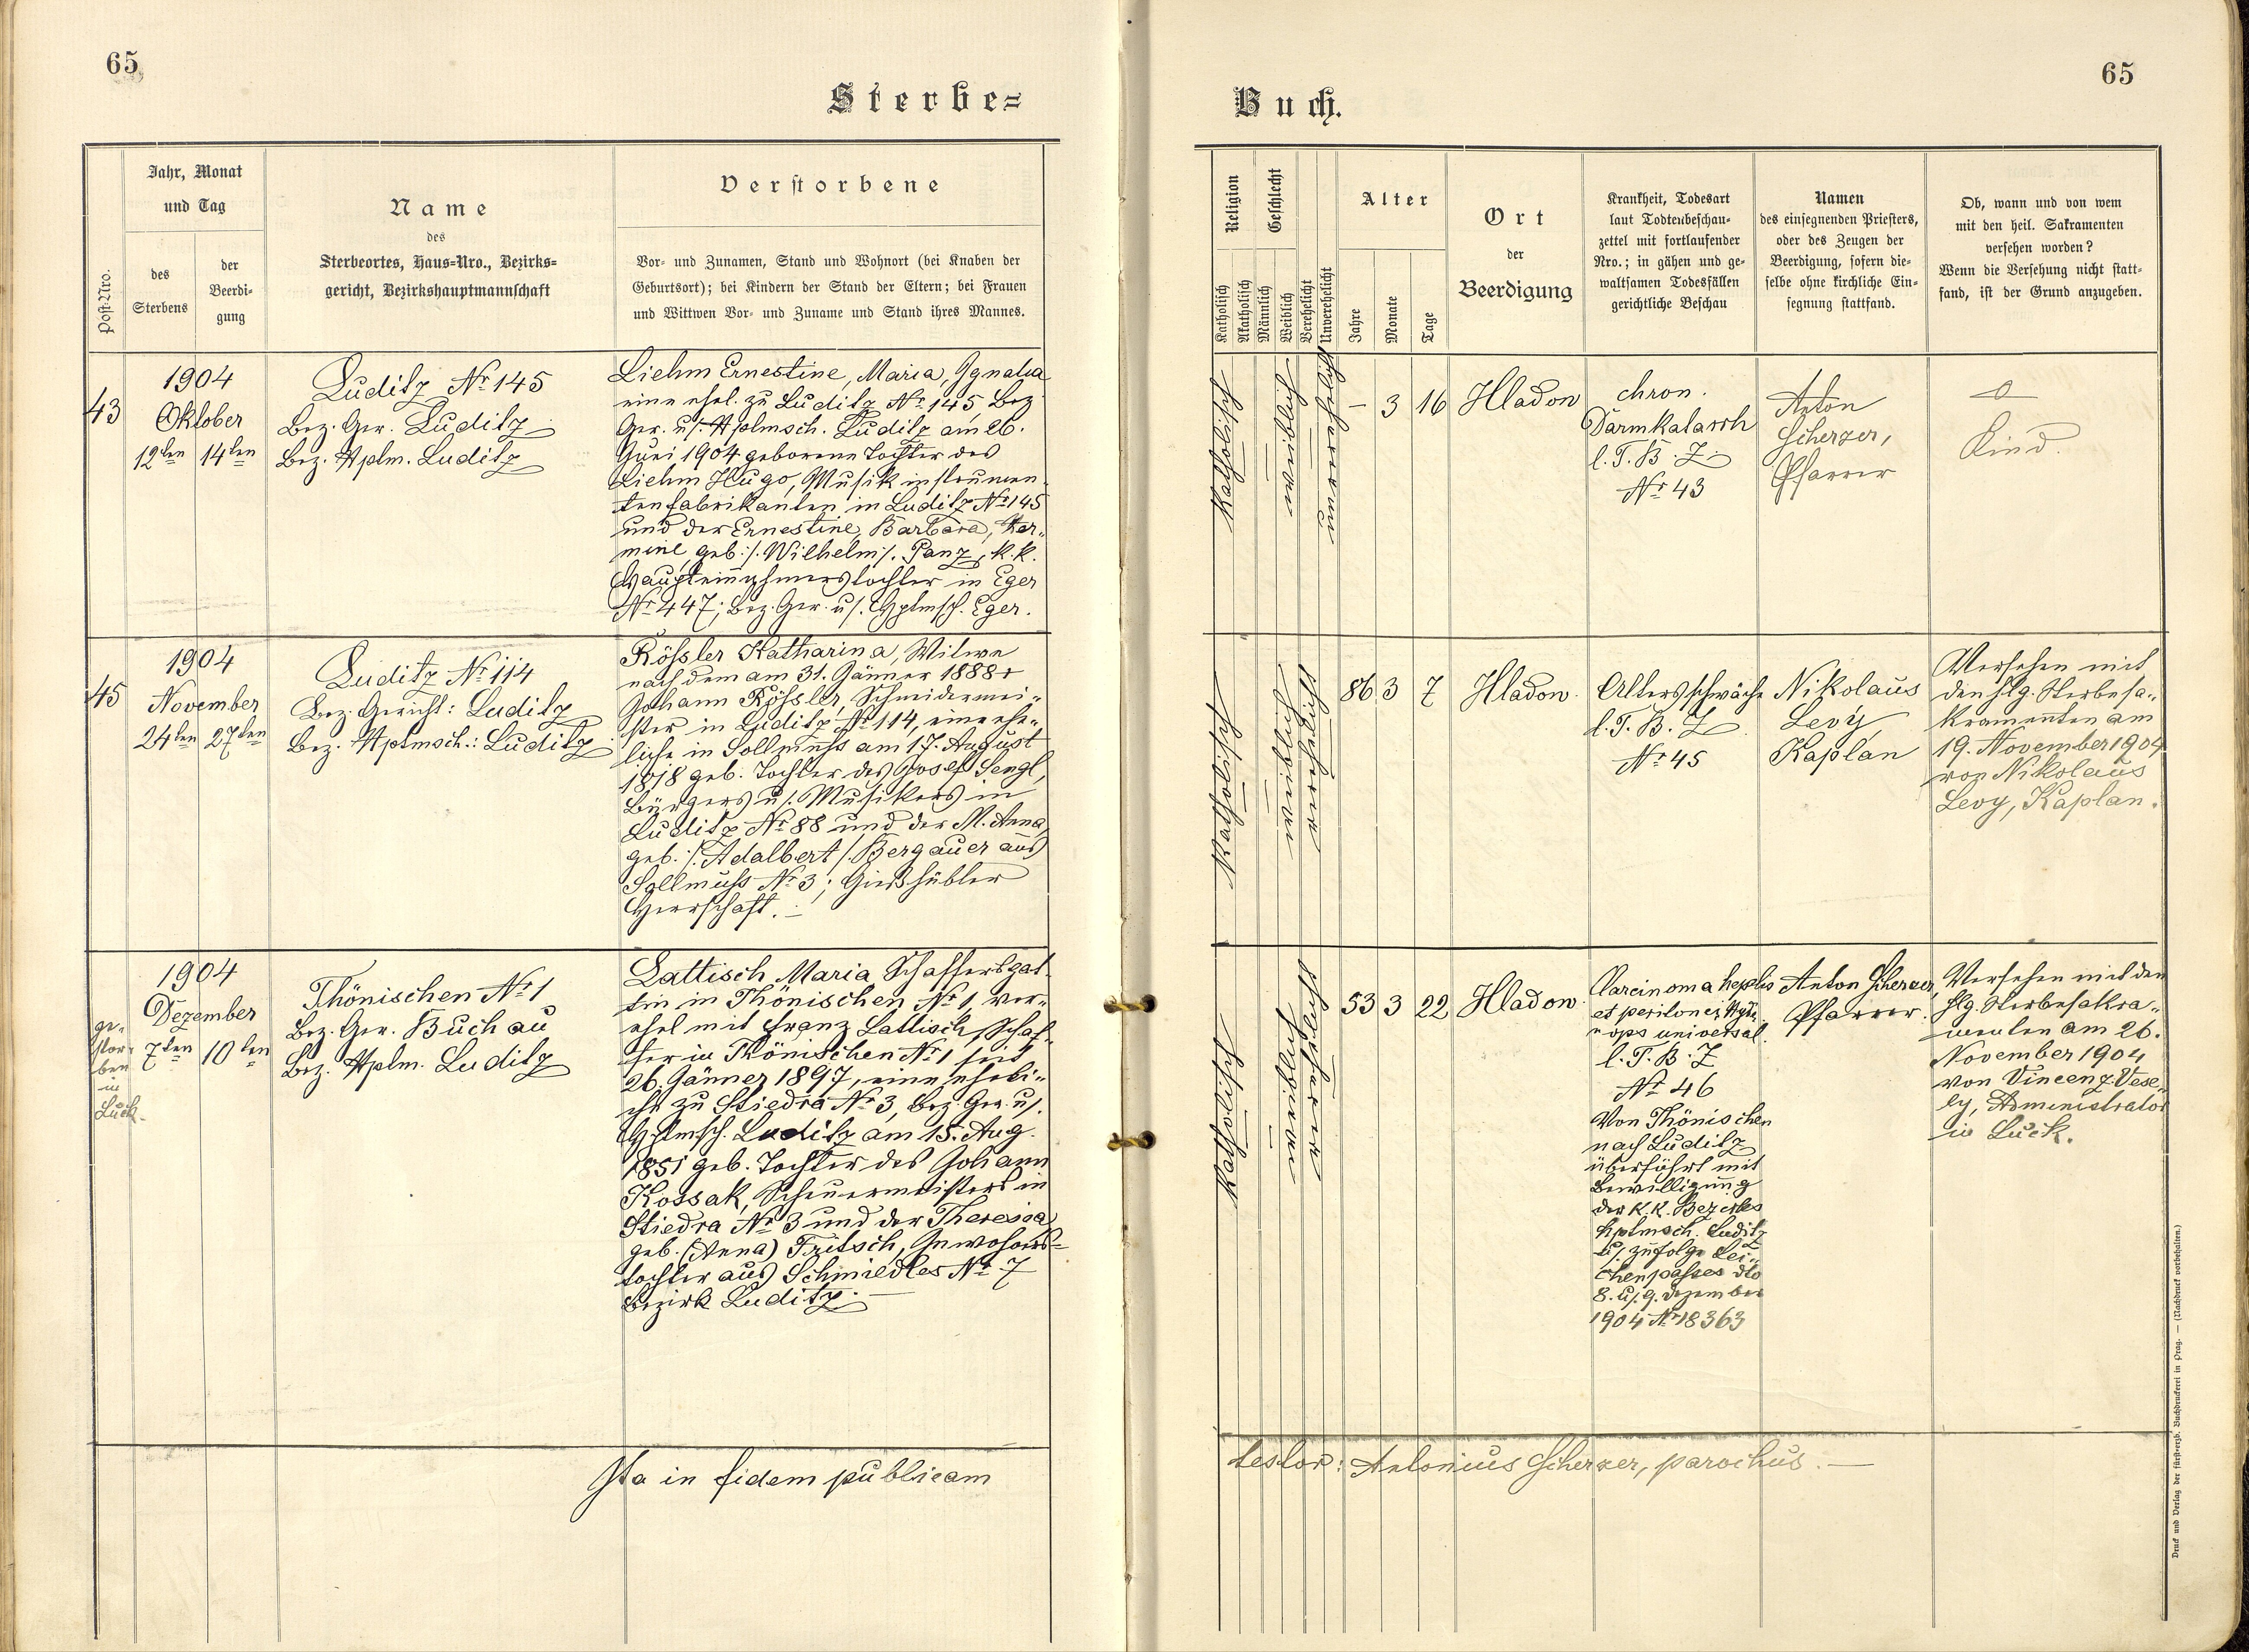 65
Sterbe=
Jahr, Monat
und Tag
Post-Nro.
des
Sterbens
der
Beerdi-
gung
Name
des
Sterbeortes, Haus-Nro., Bezirks-
gericht, Bezirkshauptmannschaft
Verstorbene
Vor- und Zunamen, Stand und Wohnort (bei Knaben der
Geburtsort); bei Kindern der Stand der Eltern; bei Frauen
und Wittwen Vor- und Zuname und Stand ihres Mannes.
43
1904
Oktober
12ten 14ten
Luditz Nr 145
Bez. Ger. Luditz
Bez. Hptm. Luditz
Liehm Ernestine, Maria, Ignatia
eine ehel. zu Luditz Nr 145 Bez
Ger. u/. Hptmsch. Luditz am 26.
Juni 1904 geborene Tochter des
Liehm Hugo, Musikinstrumen
tenfabrikanten in Luditz Nr 145
und der Ernestine, Barbara, Her„
mine, geb. /. Wilhelm/. Panz, k. k.
Haupteinnehmerstochter in Eger
Nr 447; Bez. Ger. u/. Hptmsch. Eger.
45
1904
November
24ten 27ten
Luditz Nr 114
Bez. Gericht: Luditz
Bez. Hptmsch.: Luditz
Rößler Katharina, Witwe
nach dem am 31. Jänner 1888 +
Johann Rößler, Schneidermei„
ster in Luditz Nr 114, eine ehe„
liche in Sollmuß am 17. August
1818 geb. Tochter des Josef Sengl,
Bürgers u/. Musikers in
Luditz Nr 88 und der M. Anna
geb. /. Adalbert /. Bergauer aus
Sollmuß Nr 3; Gießhübler
Herrschaft.
ge„
stor„
ben
in
Luck.
1904
Dezember
7ten 10ten
Thönischen Nr 1
Bez. Ger. Buchau
Bez. Hptm. Luditz
Lattisch Maria Schaffersgat„
tin in Thönischen Nr 1, ver„
ehel mit Franz Lattisch, Schaf„
fer in Thönischen Nr 1 seit
26. Jänner 1897, eine eheli„
che zu Stiedra Nr 3, Bez. Ger. u/.
Hptmsch. Luditz am 15. Aug.
1851 geb. Tochter des Johann
Kossak, Scheuermeisters in
Stiedra Nr 3 und der Theresia
geb. (Anna) Fritsch, Inwohners-
tochter aus Schmiedles Nr 7
Bezirk Luditz.
Ita in fidem publicam
65
Buch.
Religion
Geschlecht
Katholisch
Akatholisch
Männlich
Weiblich
Verehelicht
Unverehelicht
Alter
Jahre
Monate
Tage
Ort
der
Beerdigung
Krankheit, Todesart
laut Todtenbeschau-
zettel mit fortlaufender
Nro.; in gähen und ge-
waltsamen Todesfällen
gerichtliche Beschau
Namen
des einsegnenden Priesters,
oder des Zeugen der
Beerdigung, sofern die-
selbe ohne kirchliche Ein-
segnung stattfand.
Ob, wann und von wem
mit den heil. Sakramenten
versehen worden?
Wenn die Versehung nicht statt-
fand, ist der Grund anzugeben.
Katholisch
weiblich
unverehelicht
– 3 16
Hladon
chron.
Darmkatarrh
l. T. B. Z.
Nr 43
Anton
Scherzer,
Pfarrer
o
Kind.
Katholisch
weiblich
verehelicht
86 3 7
Hladon.
Altersschwäche
l. T. B. Z
Nr 45
Nikolaus
Levy
Kaplan
Versehen mit
den hlg. Sterbesa„
kramenten am
19. November 1904
von Nikolaus
Levy, Kaplan.
Katholisch
weiblich
verehelicht
53 3 22
Hladon.
Carcinoma
universal.
l. T. B. Z
Nr 46
Von Thönischen
nach Luditz
überführt mit
Bewilligung
der k. k. Bezirks
hptmsch. Luditz
u/. zufolge Lei„
chenpasses dto
8. u/. 9. Dezember
1904 Nr 18363
Anton Scherzer,
Pfarrer.
Versehen mit den
hlg. Sterbesakra„
menten am 26.
November 1904
von Vincenz Vese„
ly, Administrator
in Luck.
testor: Antonius Scherzer, parochus. —
Druck und Verlag der fürst-erzb. Buchdruckerei in Prag. — (Nachdruck vorbehalten.)